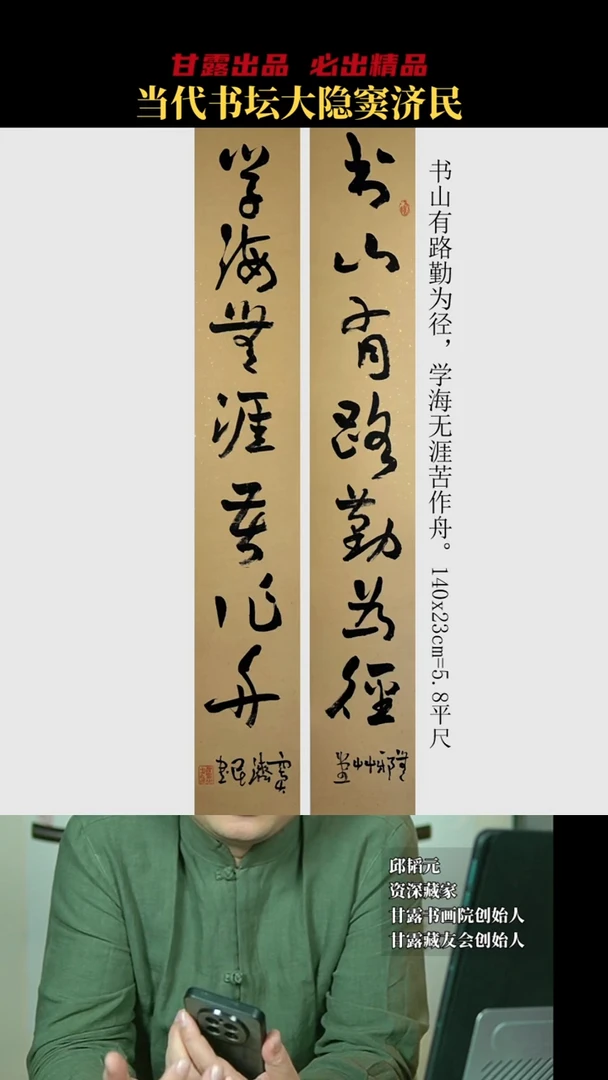 甘露出品 必出精品
当代书坛大隐窦济民
书山有路勤为径，学海无涯苦作舟。140x23cm=5.8平尺
书山有路勤为徑
無邪艸堂
学海無涯苦作舟
竇濟民書
邱韬元
资深藏家
甘露书画院创始人
甘露藏友会创始人